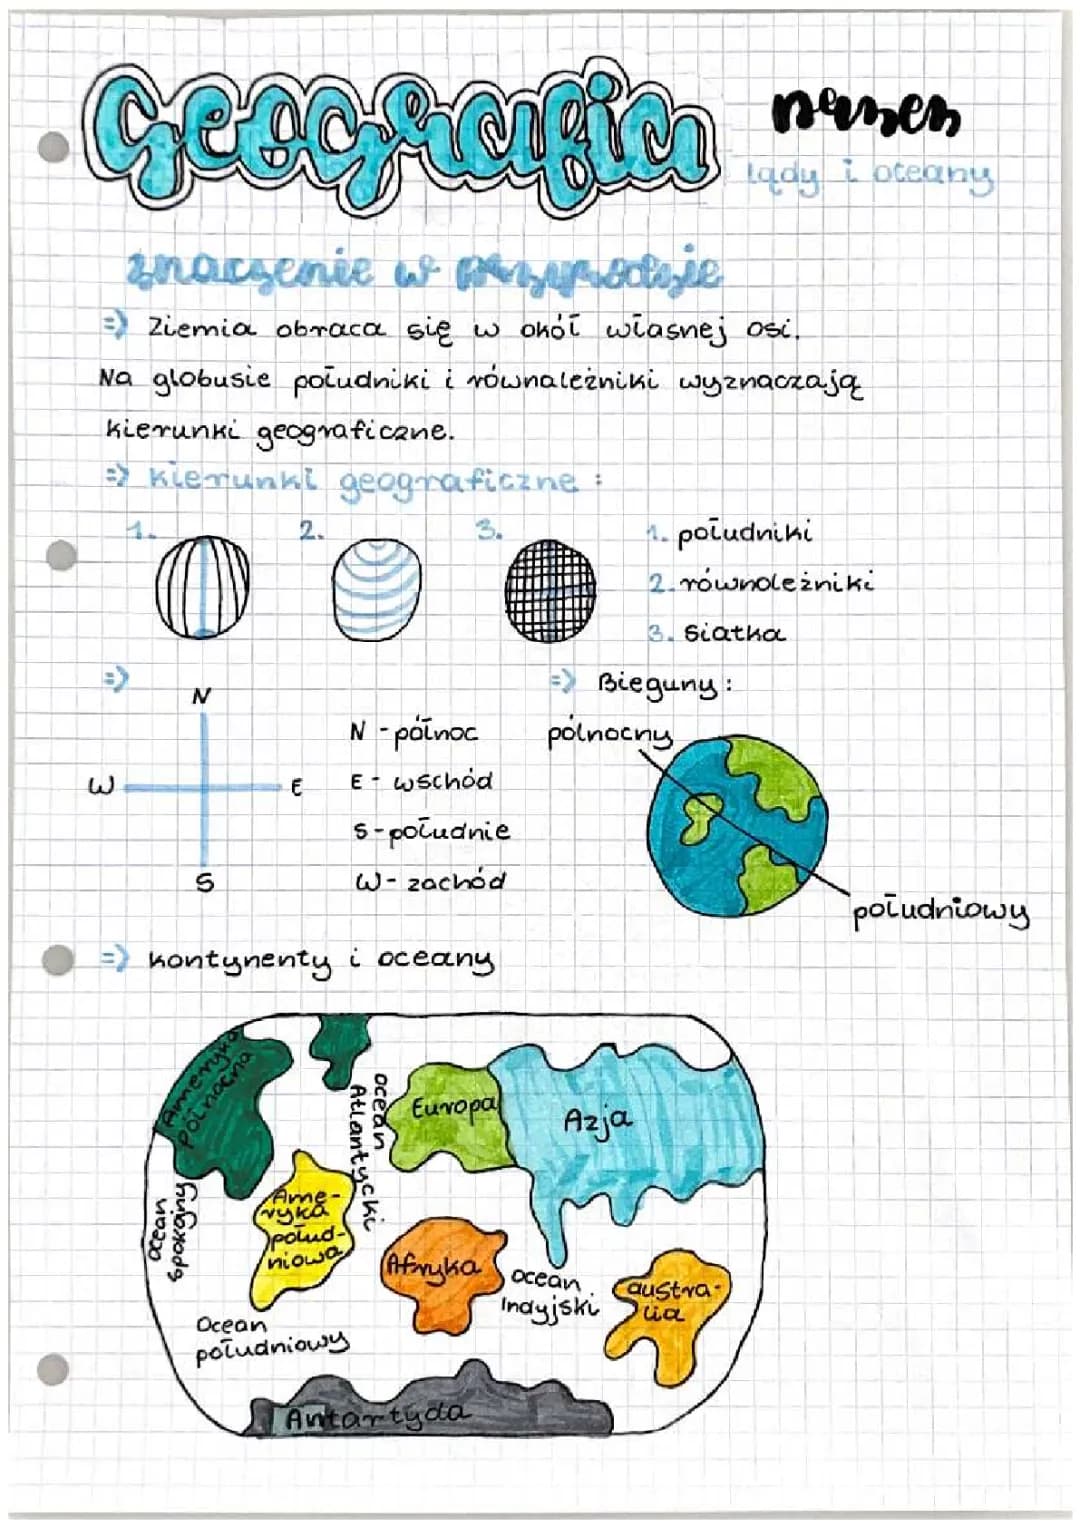 Geografia
lądy i oceany
znaczenie w przyrodzie
=> Ziemia obraca się w okół własnej osi.
Na globusie południki i równależniki wyznaczają
kierunki geograficzne.
=> kierunki geograficzne :
1. 2. 3.
1. południki
2. równoleżniki
3. siatka
=>
N
W E
S
N - północ
E - wschód
S - południe
W - zachód
=> Bieguny :
pólnocny
południowy
=> kontynenty i oceany
Ameryka
północna
ocean
Atlantycki
Europa
Azja
ocean
spokojny
Ame-
ryka
połud-
niowa
Afryka
ocean
Indyjski
austra-
lia
Ocean
południowy
Antartyda